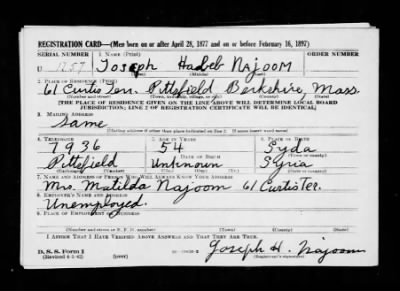 REGISTRATION CARD—(Men born on or after April 28, 1877 and on or before February 16, 1897)
SERIAL NUMBER 1. NAME (Print) ORDER NUMBER
U 1257 Joseph Habeb NAJOOM
(First) (Middle) (Last)
2. PLACE OF RESIDENCE (Print)
61 Curtis Terr. Pittsfield Berkshire, Mass.
(Number and street) (Town, township, village, or city) (County) (State)
[THE PLACE OF RESIDENCE GIVEN ON THE LINE ABOVE WILL DETERMINE LOCAL BOARD
JURISDICTION; LINE 2 OF REGISTRATION CERTIFICATE WILL BE IDENTICAL]
3. MAILING ADDRESS
Same
[Mailing address if other than place indicated on line 2. If same insert word same]
4. TELEPHONE 5. AGE IN YEARS 6. PLACE OF BIRTH
7936 54 Syda
DATE OF BIRTH (Town or county)
Pittsfield Unknown Syria
(Exchange) (Number) (Mo.) (Day) (Yr.) (State or country)
7. NAME AND ADDRESS OF PERSON WHO WILL ALWAYS KNOW YOUR ADDRESS
Mrs. Matilda Najoom 61 Curtis Ter.
8. EMPLOYER'S NAME AND ADDRESS
Unemployed.
9. PLACE OF EMPLOYMENT OR BUSINESS
(Number and street or R. F. D. number) (Town) (County) (State)
I AFFIRM THAT I HAVE VERIFIED ABOVE ANSWERS AND THAT THEY ARE TRUE.
D. S. S. Form 1
(Revised 4-1-42) (over)
Joseph H. Najoom
(Registrant's signature)